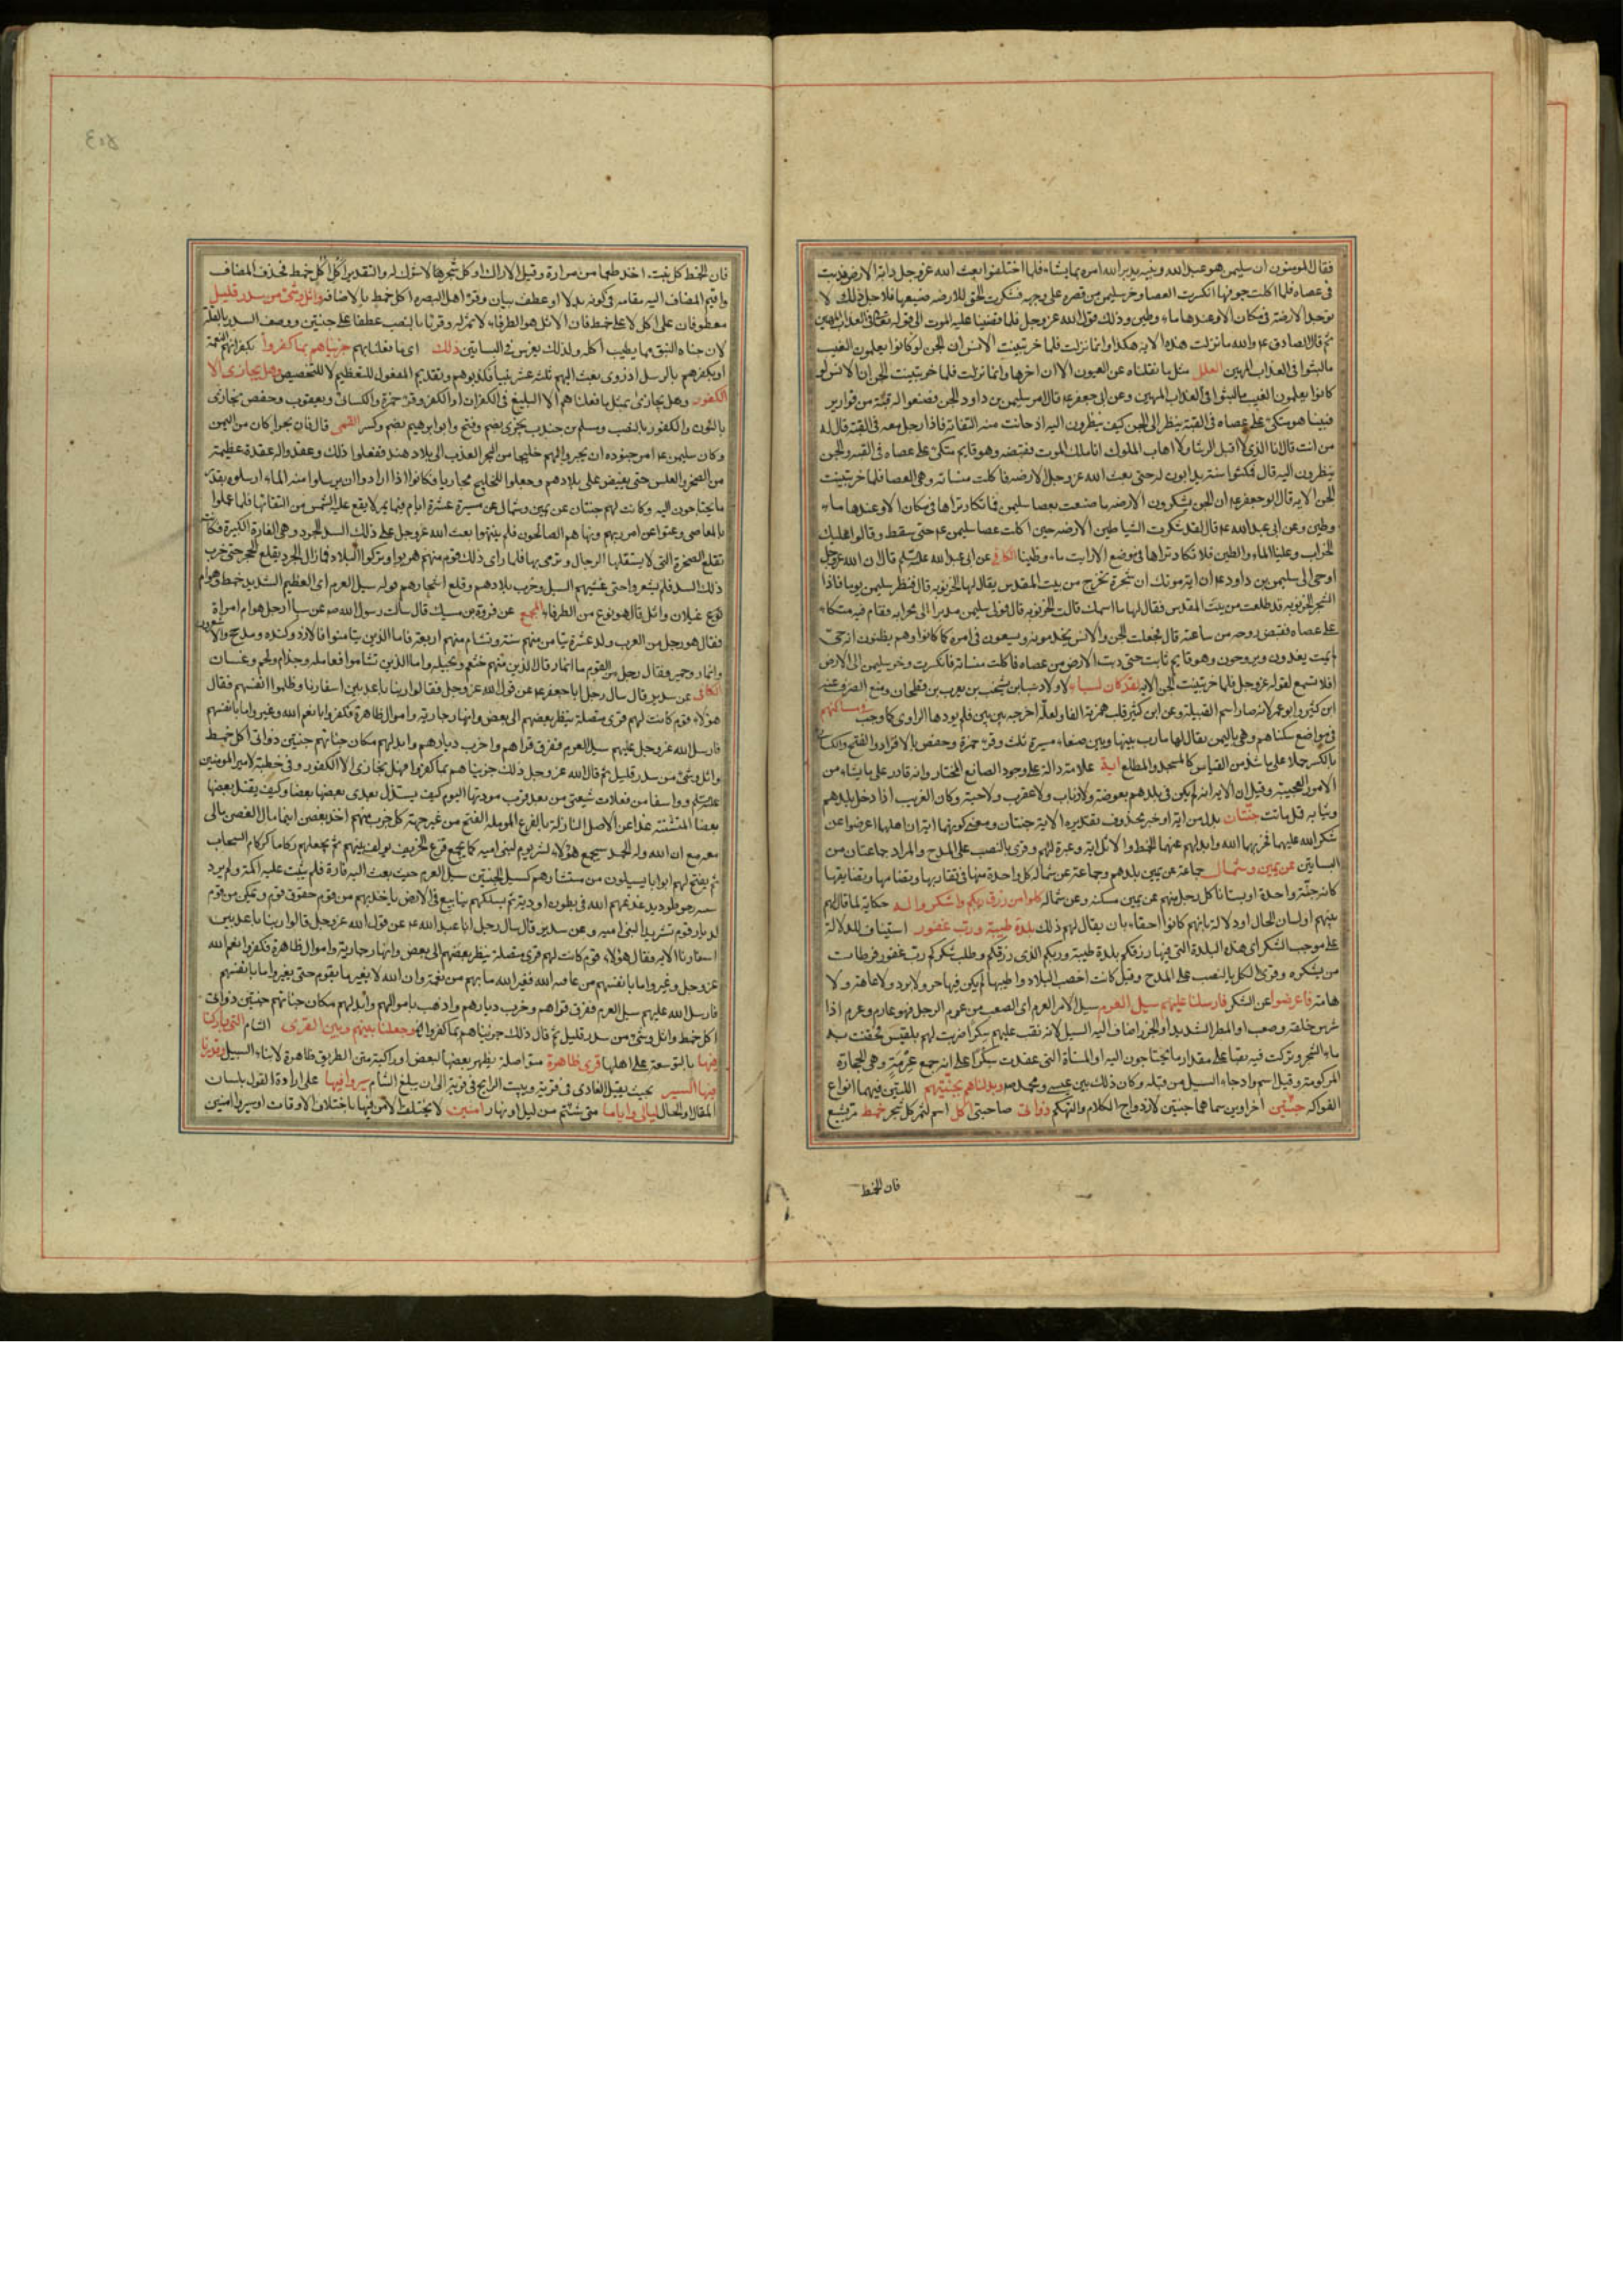 فقال المومنون ان سليمن هو عبد الله ونبيه يدبر الله امره بما يشاء فلما اختلفوا بعث الله عز وجل دابة الارض فدبت
في عصاه فلما اكلت جوفها انكسرت العصا وخر سليمن من قصره على وجهه فشكرت الجن للارضه صنيعها فلاجل ذلك لا
توجد الارضة في مكان الا وعندها ماء وطين وذلك قول الله عز وجل فلما قضينا عليه الموت الى قوله تعالى في العذاب المهين
ثم قال الصادق ع والله ما نزلت هذه الايه هكذا وانما نزلت فلما خر تبينت الانس ان الجن لو كانوا يعلمون الغيب
ما لبثوا في العذاب المهين العلل مثل ما نقلناه عن العيون الا ان اخرها وانما نزلت فلما خر تبينت الجن ان الانس لو
كانوا يعلمون الغيب ما لبثوا في العذاب المهين وعن ابي جعفر ع قال امر سليمن بن داود الجن فصنعوا له قبة من قوارير
فبينا هو متكئ على عصاه في القبة ينظر الى الجن كيف ينظرون اليه اذ حانت منه التفاتة فاذا رجل معه في القبة قال له
من انت قال انا الذي لا اقبل الرشا ولا اهاب الملوك انا ملك الموت فقبضه وهو قايم متكئ على عصاه في القبه والجن
ينظرون اليه قال فمكثوا سنة يدابون له حتى بعث الله عز وجل الارضه فاكلت منساته وهي العصا فلما خر تبينت
الجن الايه قال ابو جعفر ع ان الجن يشكرون الارضه ما صنعت بعصا سليمن فما تكاد تراها في مكان الا وعندها ماء
وطين وعن ابي عبد الله ع قال لقد شكرت الشياطين الارضه حين اكلت عصا سليمن ع حتى سقط وقالوا عليك
الخراب وعلينا الماء والطين فلا تكاد تراها في موضع الا رايت ماء وطينا الكافي عن ابي عبد الله عليه السلم قال ان الله عز وجل
اوحى الى سليمن بن داود ع ان اية موتك ان شجرة تخرج من بيت المقدس يقال لها الخرنوبه قال فنظر سليمن يوما فاذا
الشجر الخرنوبه قد طلعت من بيت المقدس فقال لها ما اسمك قالت الخرنوبه قال فولى سليمن مدبرا الى محرابه فقام فيه متكاء
على عصاه فقبض روحه من ساعته قال فجعلت الجن والانس يخدمونه ويسعون في امره كما كانوا وهم يظنون انه حي
لم يمت يغدون ويروحون وهو قايم ثابت حتى دبت الارض من عصاه فاكلت منساته فانكسرت وخر سليمن الى الارض
افلا تسمع لقوله عز وجل فلما خر تبينت الجن الايه لقد كان لسباء لاولاد سبا بن يشجب بن يعرب بن قحطان ومنع الصرف عنه
ابن كثير وابو عمر لانه صار اسم القبيلة وعن ابن كثير قلب همزته الفا ولعله اخرجه بين بين فلم يودها الراوي كما وجب في مساكنهم
في مواضع سكناهم وهي باليمن يقال لها مارب بينها وبين صنعاء ميسرة ثلث وقرء حمزة وحفص بالافراد والفتح والكسائي
بالكسر حملا على ما شذ من القياس كالمسجد والمطلع اية علامة دالة على وجود الصانع المختار وانه قادر على ما يشاء من
الامور العجيبة وقيل ان الايه انه لم يكن في بلدهم بعوضة ولا ذباب ولا عقرب ولا حية وكان الغريب اذا دخل بلدهم
وثيابه قمل ماتت جنتان بدل من اية او خبر محذوف تقديره الاية جنتان ومعنى كونهما اية ان اهلهما اعرضوا عن
شكر الله عليهما فخربهما الله وابدلهم عنهما الخمط والاثل اية وعبرة لهم وقرئ بالنصب على المدح والمراد جماعتان من
البساتين عن يمين وشمال جماعة عن يمين بلدهم وجماعة عن شماله كل واحدة منهما في تقاربها وتضامها وتضايقها
كانه جنة واحدة او بستانا كل رجل منهم عن يمين مسكنه وعن شماله كلوا من رزق ربكم واشكروا له حكاية لما قال لهم
نبيهم او لسان الحال او دلالة بانهم كانوا احقاء بان يقال لهم ذلك بلدة طيبة ورب غفور استيناف للدلالة
على موجب الشكر اي هذه البلدة التي فيها رزقكم بلدة طيبة وربكم الذي رزقكم وطلب شكركم رب غفور فرطات
من يشكره وقرئ الكل بالنصب على المدح وقيل كانت اخصب البلاد واطيبها لم يكن فيها حر ولا برد ولا عاهة ولا
هامة فاعرضوا عن الشكر فارسلنا عليهم سيل العرم سيل الامر العرم اي الصعب من عرم الرجل فهو عارم وعرم اذا
شرس خلقه وصعب او المطر الشديد او الجرذ اضاف اليه السيل لانه نقب عليهم سكرا ضربت لهم بلقيس فحقنت به
ماء الشجر وتركت فيه نقبا على مقدار ما يحتاجون اليه او المسناة التي عقدت سكرا على انه جمع عرمة وهي الحجارة
المركومة وقيل اسم واد جاء السيل من قبله وكان ذلك بين عيسى ومحمد ص وبدلناهم بجنتيهم اللتين فيهما انواع
الفواكه جنتين اخراوين سماهما جنتين لازدواج الكلام والتهكم ذواتى صاحبتي اكل اسم لثمر كل شجر خمط مر بشع
فان الخمط
فان الخمط كل نبت اخذ طعما من مرارة وقيل الاراك او كل شجر ها لا شوك له والتقدير اكل اكل خمط فحذف المضاف
واقيم المضاف اليه مقامه في كونه بدلا او عطف بيان وقرء اهل البصره اكل خمط بالاضافه واثل وشئ من سدر قليل
معطوفان على اكل لا على خمط فان الاثل هو الطرفاء لا ثمر له وقرئا بالنصب عطفا على جنتين ووصف السدر بالقلة
لان جناه النبق مما يطيب اكله ولذلك يغرس في البساتين ذلك اي ما فعلنا بهم جزيناهم بما كفروا بكفرانهم النعمة
او بكفرهم بالرسل اذ روى بعث اليهم ثلث عشر نبيا فكذبوهم وتقديم المفعول للتعظيم لا للتخصيص وهل يجازى الا
الكفور وهل يجازى بمثل ما فعلنا هم الا البليغ في الكفران او الكفر وقرء حمزة والكسائي ويعقوب وحفص نجازي
بالنون والكفور بالنصب ومسلم بن جندب يجزى بضم وفتح وابو ابرهيم بضم وكسر القمي قال فان بحرا كان من اليمن
وكان سليمن ع امر جنوده ان يجروا لهم خليجا من البحر العذب الى بلاد هند ففعلوا ذلك وعقدوا له عقدة عظيمة
من الصخر والكلس حتى يفيض على بلادهم وجعلوا للخليج مجاريا فكانوا اذا ارادوا ان يرسلوا منه الماء ارسلوه بقدر
ما يحتاجون اليه وكانت لهم جنتان عن يمين وشمال عن مسيرة عشرة ايام فيما يمر لا يقع عليه الشمس من التفافها فلما عملوا
بالمعاصي وعتوا عن امر ربهم ونهاهم الصالحون فلم ينتهوا بعث الله عز وجل على ذلك السد الجرذ وهي الفارة الكبيرة فكانت
تقلع الصخرة التي لا يستقلها الرجال وترمي بها فلما راى ذلك قوم منهم هربوا وتركوا البلاد فما زال الجرذ يقلع الحجر حتى خرب
ذلك السد فلم يشعروا حتى غشيهم السيل وخرب بلادهم وقلع اشجارهم قوله سيل العرم اي العظيم الشديد خمط هو ام
غيلان واثل قال هو نوع من الطرفاء المجمع عن فروة بن مسيك قال سالت رسول الله ص عن سبا ارجل هو ام امراة
فقال هو رجل من العرب ولد عشرة تيامن منهم ستة وتشام منهم اربعة فاما الذين تيامنوا فالازد وكنده ومذحج والاشعرون
وانمار وحمير فقال رجل من القوم ما انمار قال الذين منهم خثعم وبجيله واما الذين تشاموا فعامله وجذام ولخم وغسان
الكافي عن سدير قال سال رجل ابا جعفر ع عن قول الله عز وجل فقالوا ربنا باعد بين اسفارنا وظلموا انفسهم فقال
هؤلاء قوم كانت لهم قرى متصلة ينظر بعضهم الى بعض وانهار جارية واموال ظاهرة فكفروا بانعم الله وغيروا ما بانفسهم
فارسل الله عز وجل عليهم سيل العرم ففرق قراهم واخرب ديارهم وابدلهم مكان جناتهم جنتين ذواتى اكل خمط
واثل وشئ من سدر قليل ثم قال الله عز وجل ذلك جزيناهم بما كفروا وهل يجازى الا الكفور وفي خطبة لامير المومنين
عليه السلم ووا اسفا من فعلات شيعتي من بعد قرب مودتها اليوم كيف يستذل بعدى بعضها بعضا وكيف يقتل بعضها
بعضا المتشتتة غدا عن الاصل النازلة بالفرع المومله الفتح من غير جهته كل حزب منهم اخذ بغصن اينما مال الغصن مال
معه مع ان الله وله الحمد سيجمع هؤلاء لشر يوم لبني اميه كما يجمع قزع الخريف يولف بينهم ثم يجعلهم ركاما كركام السحاب
ثم يفتح لهم ابوابا يسيلون من مستشارهم كسيل الجنتين سيل العرم حيث بعث اليه فارة فلم يثبت عليه اكمة ولم يرد
سننه رص طود يدغدغهم الله في بطون اودية ثم يسلكهم ينابيع في الارض ياخذ بهم من قوم حقوق قوم ويمكن من قوم
لديار قوم تشريدا لبني اميه وعن سدير قال سال رجل ابا عبد الله ع عن قول الله عز وجل قالوا ربنا باعد بين
اسفارنا الايه فقال هؤلاء قوم كانت لهم قرى متصلة ينظر بعضهم الى بعض وانهار جارية واموال ظاهرة فكفروا نعم الله
عز وجل وغيروا ما بانفسهم من عافيه الله فغير الله ما بهم من نعمة وان الله لا يغير ما بقوم حتى يغيروا ما بانفسهم
فارسل الله عليهم سيل العرم ففرق قراهم وخرب ديارهم واذهب باموالهم وابدلهم مكان جناتهم جنتين ذواتى
اكل خمط واثل وشئ من سدر قليل ثم قال ذلك جزيناهم بما كفروا وجعلنا بينهم وبين القرى الشام التي باركنا
فيها بالتوسعة على اهلها قرى ظاهرة متواصلة يظهر بعضها لبعض او راكبة متن الطريق ظاهرة لابناء السبيل وقدرنا
فيها السير بحيث يقيل الغادي في قرية ويبيت الرايح في قرية الى ان يبلغ الشام سيروا فيها على ارادة القول بلسان
المقال او الحال ليالي واياما متى شئتم من ليل او نهار امنين لا يختلط الامن فيها باختلاف الاوقات او سيروا امنين